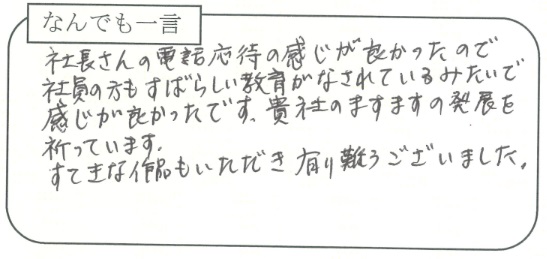 なんでも一言
社長さんの電話応待の感じが良かったので
社員の方もすばらしい教育がなされているみたいで
感じが良かったです。貴社のますますの発展を
祈っています。
すてきな作品もいただき有り難うございました。